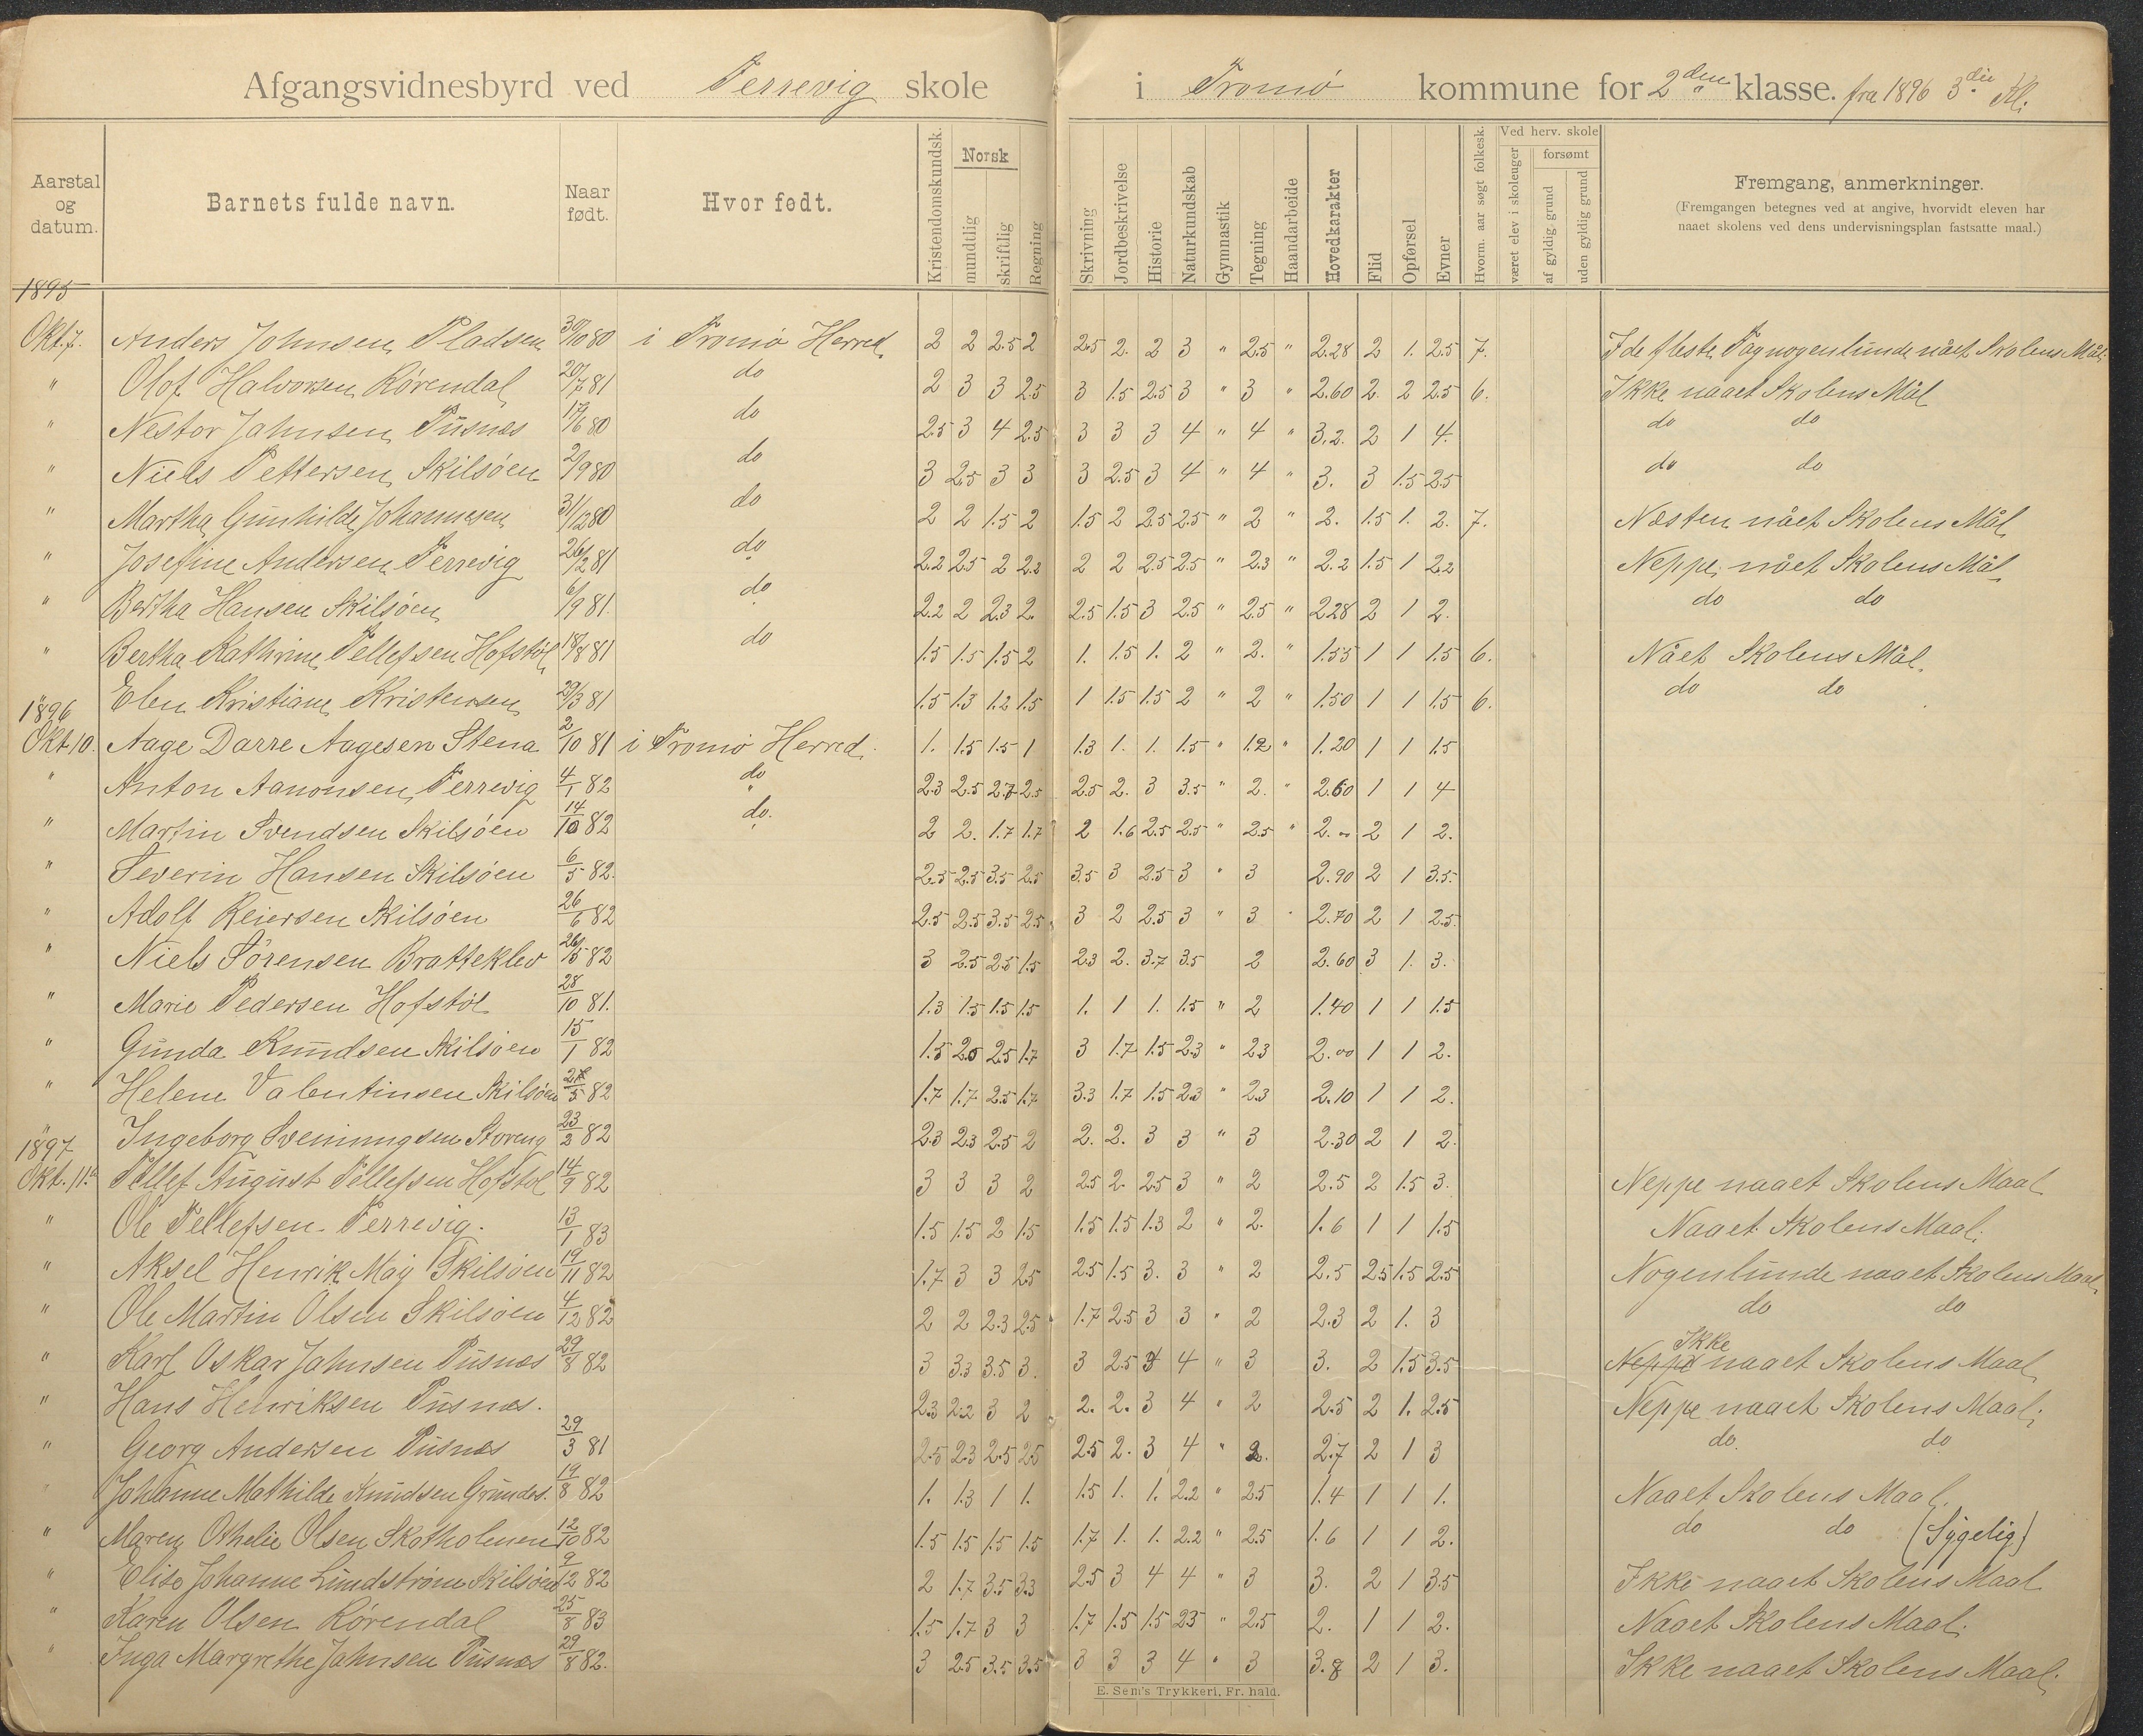 Afgangsvidnesbyrd ved Terrevig skole i Tromø kommune for 2den klasse. fra 1896 3die Kl.
Aarstal og datum. Barnets fulde navn. Naar født. Hvor født. Kristendomskundsk. Norsk mundtlig skriftlig Regning Skrivning Jordbeskrivelse Historie Naturkundskab Gymnastik Tegning Haandarbeide Hovedkarakter Flid Opførsel Evner Hvorm. aar søgt folkesk. Ved herv. skole været elev i skoleuger forsømt af gyldig grund uden gyldig grund Fremgang, anmerkninger.
(Fremgangen betegnes ved at angive, hvorvidt eleven har
naaet skolens ved dens undervisningsplan fastsatte maal.)
1895
Okt. 7. Anders Johnsen Pladsen 30/10 80 i Tromø Herred 2 2 2.5 2 2.5 2. 2 3 " 2.5 " 2.28 2 1. 2.5 7. I de fleste Fag nogenlunde nået Skolens Mål.
" Olof Halvorsen Rørendal 20/7 81 do 2 3 3 2.5 3 1.5 2.5 3 " 3 " 2.60 2. 2 2.5 6. Ikke naaet Skolens Mål
" Nestor Jahnsen Pusnes 17/6 80 do 2.5 3 4 2.5 3 3 3 4 " 4 " 3.2. 2 1 4. do do
" Niels Pettersen Skilsøen 2/9 80 do 3 2.5 3 3 3 2.5 3 4 " 4 " 3. 3 1.5 2.5 do do
" Martha Gunhilde Johannesen 31/12 80 do 2 2 1.5 2 1.5 2 2.5 2.5 " 2 " 2. 1.5 1. 2. 7. Næsten nået Skolens Mål
" Josefine Andersen Terrevig 26/2 81 do 2.2 2.5 2 2.2 2 2 2.5 2.5 " 2.3 " 2.2 1.5 1 2.2 Neppe nået Skolens Mål
" Bertha Hansen Skilsøen 6/9 81. do 2.2 2 2.3 2. 2.5 1.5 3 2.5 " 2.5 " 2.28 2 1 2. do do
" Bertha Kathrine Tellefsen Hofstøl 18/8 81 do 1.5 1.5 1.5 2 1. 1.5 1. 2 " 2. " 1.55 1 1 1.5 6. Nået Skolens Mål.
" Elen Kristiane Kristensen 29/3 81 1.5 1.3 1.2 1.5 1 1.5 1.5 2 " 2 " 1.50 1 1 1.5 6. do do
1896
Okt. 10. Aage Darre Aagesen Stena 2/10 81 i Tromø Herred. 1. 1.5 1.5 1 1.3 1. 1. 1.5 " 1.2 " 1.20 1 1 1.5
" Anton Aanonsen Terrevig 4/1 82 do 2.3 2.5 2.7 2.5 2.5 2. 3 3.5 " 2. " 2.60 1 1 4
" Martin Svendsen Skilsøen 14/10 82 do. 2 2. 1.7 1.7 2 1.6 2.5 2.5 " 2.5 " 2.00 2 1 2.
" Severin Hansen Skilsøen 6/5 82. 2.5 2.5 3.5 2.5 3.5 3 2.5 3 " 3 2.90 2 1 3.5.
" Adolf Reiersen Skilsøen 26/6 82 2.5 2.5 3.5 2.5 3 2 2.5 3 " 3 " 2.70 2 1 2.5.
" Niels Sørensen Bratteklev 26/5 82 3 2.5 2.5 1.5 2.3 2. 3.7 3.5 2 2.60 3 1. 3.
" Marie Pedersen Hofstøl 28/10 81. 1.3 1.5 1.5 1.5 1. 1 1. 1.5 " 2 1.40 1 1 1.5
" Gunda Knudsen Skilsøen 15/1 82 1.5 2.0 2.5 1.7 3 1.7 1.5 2.3 " 2.3 2.00 1 1 2.
" Helene Valentinsen Skilsøen /5 82 1.7 1.7 2.5 1.7 3.3 1.7 1.5 2.3 " 2.3 2.10 1 1 2.
" Ingeborg Sveinungsen Storeng 23/2 82 2.3 2.3 2.5 2 2. 2. 3 3 " 3 2.30 2 1 2.
1897
Okt. 11te Tellef August Tellefsen Hofstøl 14/9 82 3 3 3 2 2.5 2. 2.5 3 " 2 2.5 2 1.5 3. Neppe naaet Skolens Maal
" Ole Tellefsen Terrevig. 13/1 83 1.5 1.5 2 1.5 1.5 1.5 1.3 2 " 2. 1.6 1 1 1.5 Naaet Skolens Maal.
" Aksel Henrik May Skilsøen 19/11 82 1.7 3 3 2.5 2.5 1.5 3. 3 " 2 2.5 2.5 1.5 2.5 Nogenlunde naaet Skolens Maal.
" Ole Martin Olsen Skilsøen 4/12 82 2 2 2.3 2.5 1.7 2.5 3 3 " 2 2.3 2 1. 3 do do
" Karl Oskar Jahnsen Pusnes 29/8 82 3 3.3 3.5 3. 3 2.5 4 4 " 3 3. 2 1.5 3.5 Neppe Ikke naaet Skolens Maal
" Hans Henriksen Pusnes. 2.3 2.2 3 2 2. 2. 3 4 " 2 2.5 2 1. 2.5 Neppe naaet Skolens Maal.
" Georg Andersen Pusnes 29/3 81 2.5 2.3 2.5 2.5 2.5 2. 3 4 " 2. 2.7 2 1 3 do. do
" Johanne Mathilde Knudsen Grundes. 19/8 82 1. 1.3 1 1. 1.5 1. 1. 2.2 " 2.5 1.4 1 1 1. Naaet Skolens Maal.
" Maren Othelie Olsen Skotholmen 12/10 82 1.5 1.5 1.5 1.5 1.7 1. 1. 2.2 " 2.5 1.6 1 1 2. do do (Sygelig)
" Elise Johanne Lundstrøm Skilsøen 9/12 82 2 1.7 3.5 3.3 2.5 3 4 4 " 3 3. 2 1 3.5 Ikke naaet Skolens Maal
" Karen Olsen Rørendal 25/8 83 1.5 1.7 3 3 1.7 1.5 1.5 2.5 " 2.5 2. 1 1 2. Naaet Skolens Maal.
" Inga Margrethe Jahnsen Pusnes 29/8 82. 3 2.5 3.5 3.5 3 3 3 4 " 3 3.8 2 1 3. Ikke naaet Skolens Maal.
E. Sem's Trykkeri, Fr. hald.